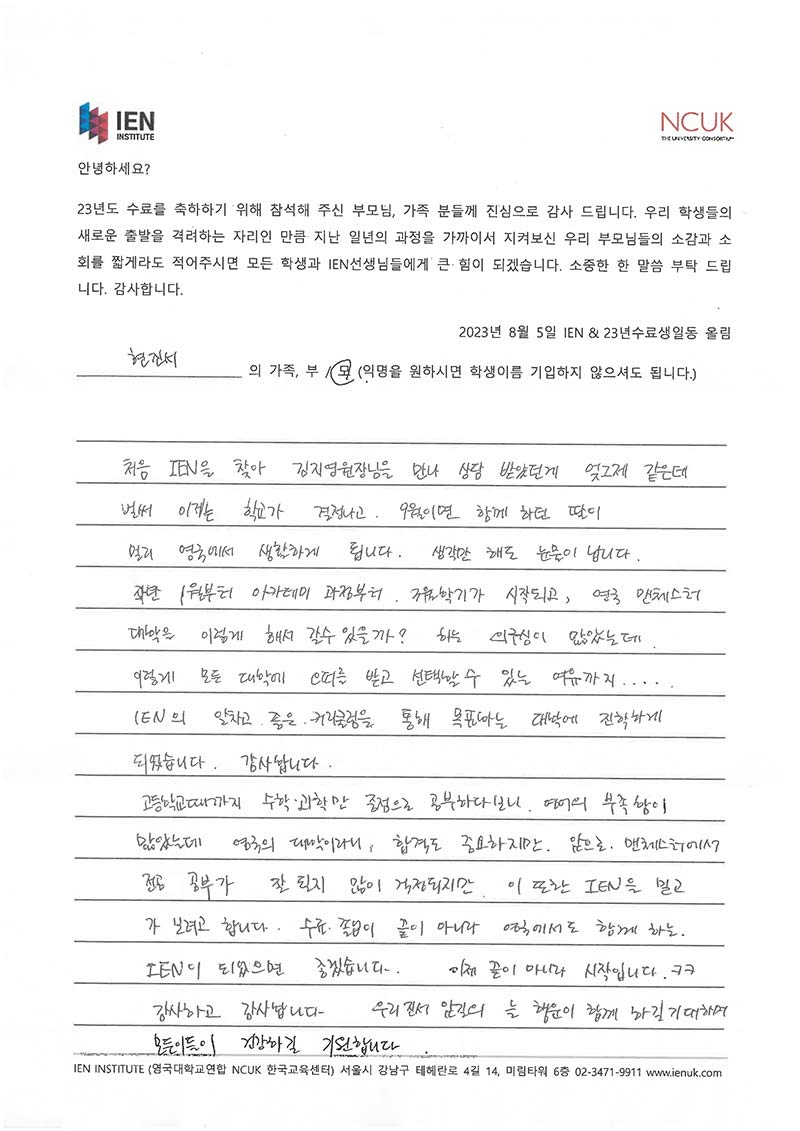 IEN
INSTITUTE
NCUK
THE UNIVERSITY CONSORTIUM
안녕하세요?
23년도 수료를 축하하기 위해 참석해 주신 부모님, 가족 분들께 진심으로 감사 드립니다. 우리 학생들의
새로운 출발을 격려하는 자리인 만큼 지난 일년의 과정을 가까이서 지켜보신 우리 부모님들의 소감과 소
회를 짧게라도 적어주시면 모든 학생과 IEN선생님들에게 큰 힘이 되겠습니다. 소중한 한 말씀 부탁 드립
니다. 감사합니다.
2023년 8월 5일 IEN & 23년수료생일동 올림
현진서 의 가족, 부 / 모 (익명을 원하시면 학생이름 기입하지 않으셔도 됩니다.)
처음 IEN을 찾아 김지영원장님을 만나 상담 받았던게 엊그제 같은데
벌써 이제는 학교가 결정나고. 9월이면 함께 하던 딸이
멀리 영국에서 생활하게 됩니다. 생각만 해도 눈물이 납니다.
작년 1월부터 아카데미 과정부터. 정규학기가 시작되고, 영국 맨체스터
대학을 이렇게 해서 갈수 있을까? 하는 의구심이 많았는데.
이렇게 모든 대학에 오퍼를 받고 선택할 수 있는 여유까지.....
IEN의 알차고 좋은 커리큘럼을 통해 목표하는 대학에 진학하게
되었습니다. 감사합니다.
고등학교때까지 수학·과학만 중점으로 공부하다보니. 영어의 부족함이
많았는데 영국의 대학이라니, 합격도 중요하지만. 앞으로. 맨체스터에서
전공 공부가 잘 될지 많이 걱정되지만 이 또한 IEN을 믿고
가 보려고 합니다. 수료·졸업이 끝이 아니라 영국에서도 함께 하는.
IEN이 되었으면 좋겠습니다. 이제 끝이 아니라 시작입니다. ㅋㅋ
감사하고 감사합니다 우리 진서 앞길의 늘 행운이 함께 하길 기대하며
모든이들이 건강하길 기원합니다.
IEN INSTITUTE (영국대학교연합 NCUK 한국교육센터) 서울시 강남구 테헤란로 4길 14, 미림타워 6층 02-3471-9911 www.ienuk.com